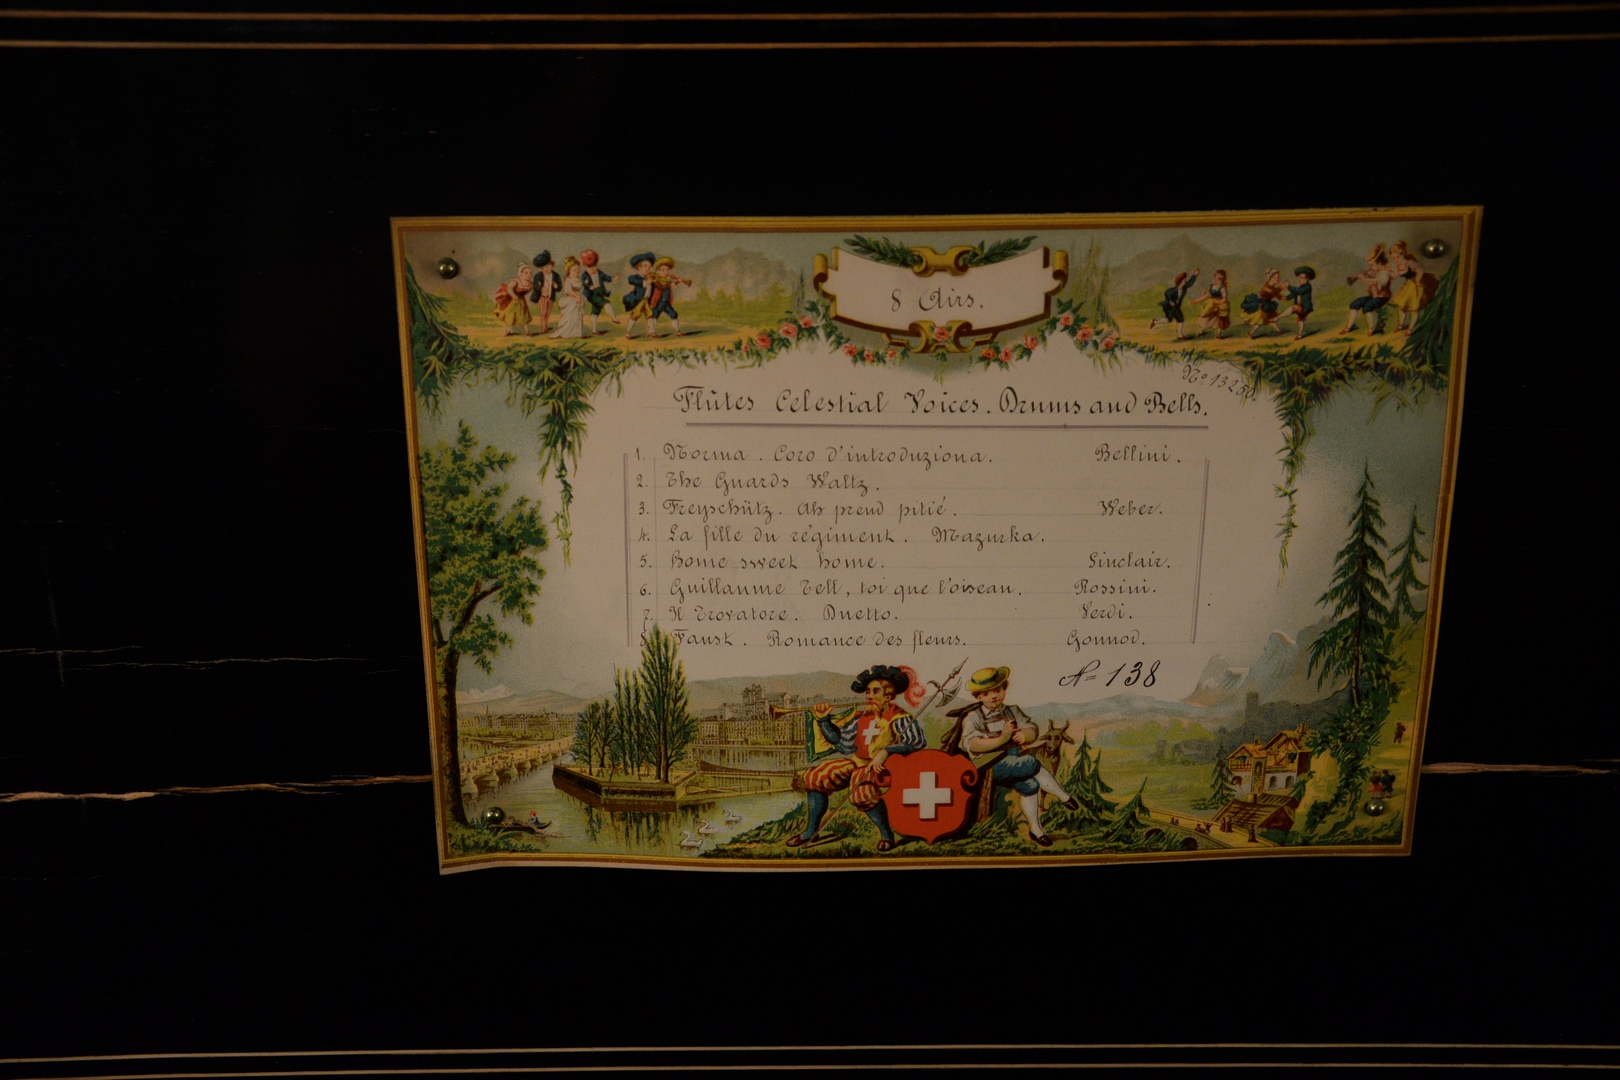 8 Airs.
No 13250.
Flûtes Celestial Voices. Drums and Bells.
1. Norma. Coro d'introduziona. Bellini.
2. The Guards Waltz.
3. Freyschütz. Ah prend pitié. Weber.
4. La fille du régiment. Mazurka.
5. Home sweet home. Sinclair.
6. Guillaume Tell, toi que l'oiseau. Rossini.
7. Il Trovatore. Duetto. Verdi.
8. Faust. Romance des fleurs. Gounod.
No 138